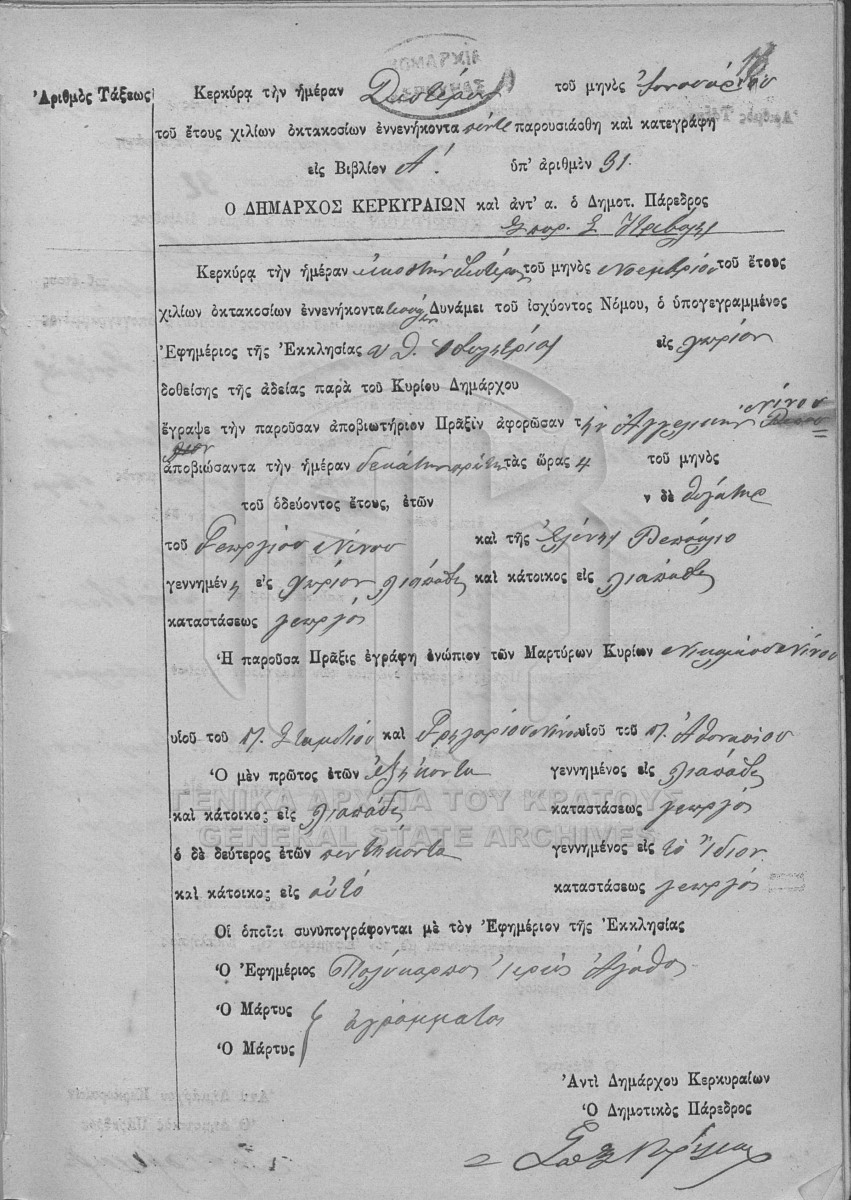 ΝΟΜΑΡΧΙΑ
Ἀριθμὸς Τάξεως
Κερκύρᾳ τὴν ἡμέραν Δευτέραν τοῦ μηνὸς Ἰανουαρίου
τοῦ ἔτους χιλίων ὀκτακοσίων ἐννενήκοντα πέντε παρουσιάσθη καὶ κατεγράφη
εἰς Βιβλίον Α′. ὑπ' ἀριθμὸν 31.
Ο ΔΗΜΑΡΧΟΣ ΚΕΡΚΥΡΑΙΩΝ καὶ ἀντ' α. ὁ Δημοτ. Πάρεδρος
Κερκύρᾳ τὴν ἡμέραν εἰκοστὴν δευτέραν τοῦ μηνὸς Νοεμβρίου τοῦ ἔτους
χιλίων ὀκτακοσίων ἐννενήκοντα Δυνάμει τοῦ ἰσχύοντος Νόμου, ὁ ὑπογεγραμμένος
Ἐφημέριος τῆς Ἐκκλησίας εἰς χωρίον
δοθείσης τῆς ἀδείας παρὰ τοῦ Κυρίου Δημάρχου
ἔγραψε τὴν παροῦσαν ἀποβιωτήριον Πρᾶξιν ἀφορῶσαν τὴν Ἀγγελικὴν Νίνου
ἀποβιώσαντα τὴν ἡμέραν τὰς ὥρας 4 τοῦ μηνὸς
τοῦ ὁδεύοντος ἔτους, ἐτῶν ν δὲ θυγάτηρ
τοῦ Γεωργίου Νίνου καὶ τῆς Ἑλένης
γεννημένη εἰς χωρίον Λιαπάδες καὶ κάτοικος εἰς Λιαπάδες
καταστάσεως γεωργός
Ἡ παροῦσα Πρᾶξις ἐγράφη ἐνώπιον τῶν Μαρτύρων Κυρίων Νικολάου Νίνου
υἱοῦ τοῦ π. Σταματίου καὶ Γρηγορίου Νίνου υἱοῦ τοῦ π. Ἀθανασίου
Ὁ μὲν πρῶτος ἐτῶν ἑξήκοντα γεννημένος εἰς Λιαπάδες
καὶ κάτοικος εἰς Λιαπάδες καταστάσεως γεωργός
ὁ δὲ δεύτερος ἐτῶν πεντήκοντα γεννημένος εἰς τὸ ἴδιον
καὶ κάτοικος εἰς αὐτό καταστάσεως γεωργός
Οἱ ὁποῖοι συνυπογράφονται μὲ τὸν Ἐφημέριον τῆς Ἐκκλησίας
Ὁ Ἐφημέριος Πολύκαρπος ἱερεὺς
Ὁ Μάρτυς
ἀγράμματοι
Ὁ Μάρτυς
Ἀντὶ Δημάρχου Κερκυραίων
Ὁ Δημοτικὸς Πάρεδρος
ΓΕΝΙΚΑ ΑΡΧΕΙΑ ΤΟΥ ΚΡΑΤΟΥΣ
GENERAL STATE ARCHIVES